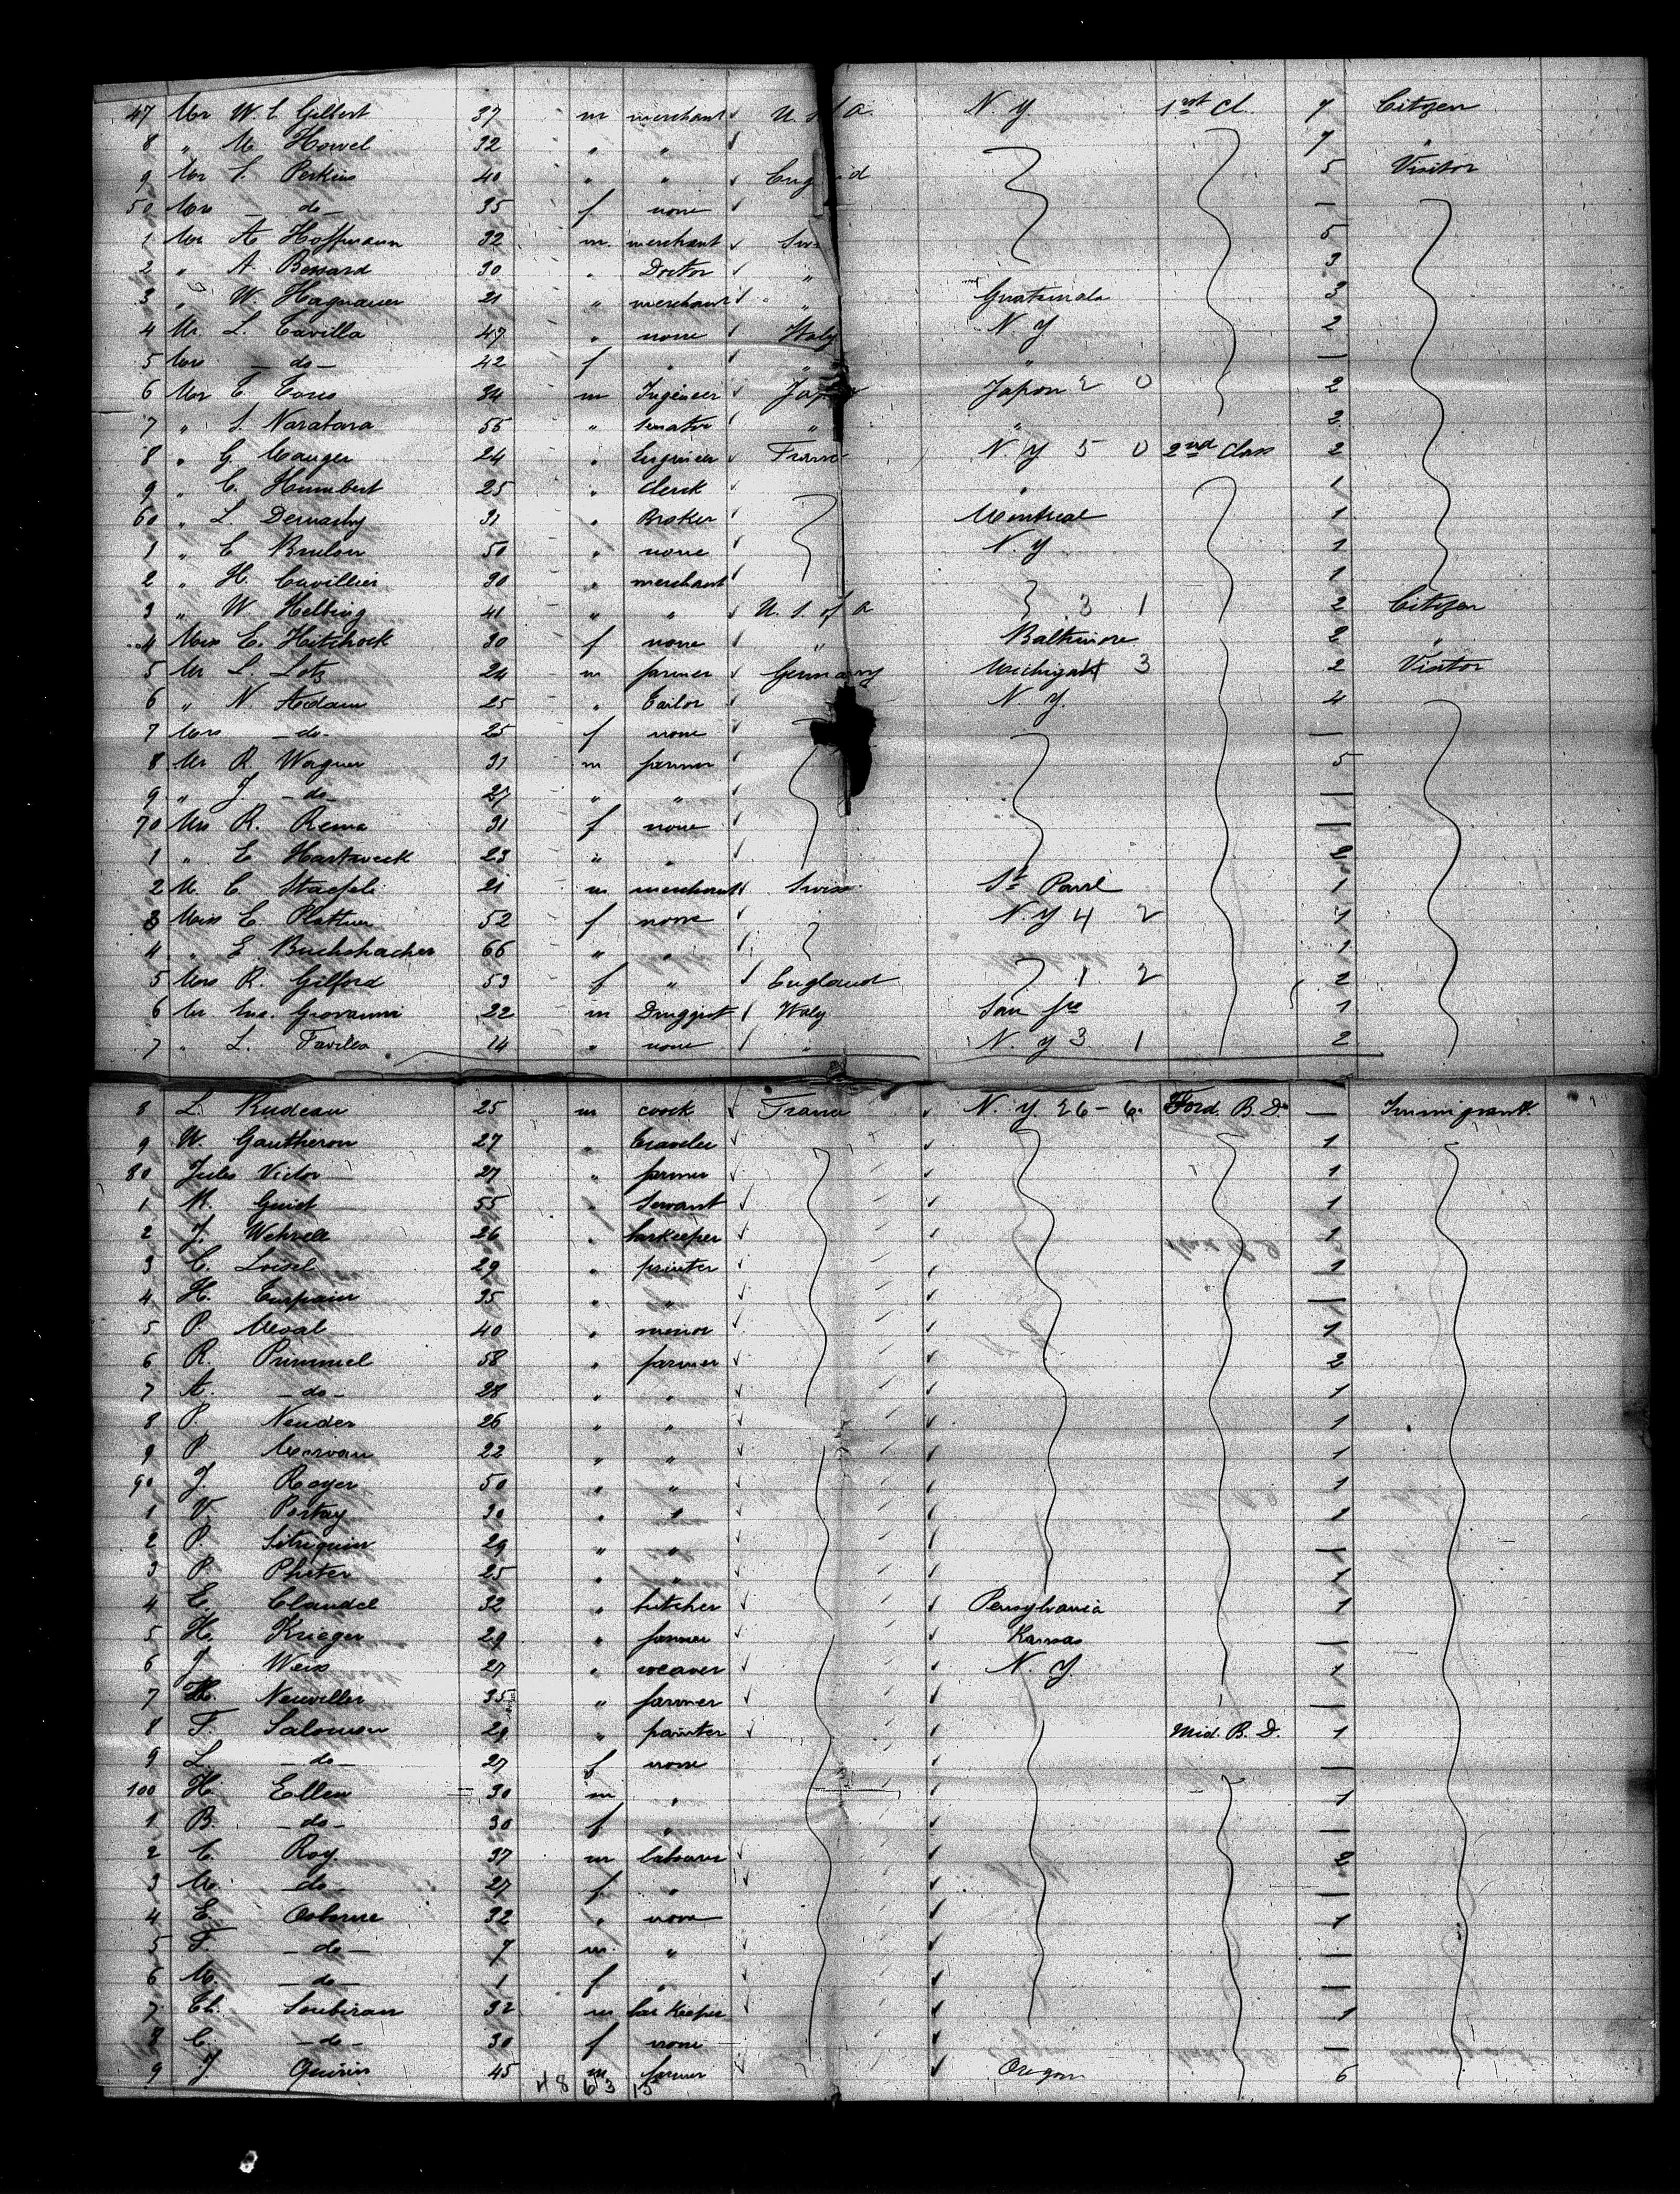 47 Mr W. C. Gilbert 37 m merchant U. S. A. N. Y. 1st Cl. 7 Citizen
8 " M Howel 32 " " 7 "
9 Mr S. Perkins 40 " " England 5 Visitor
50 Mrs -do- 35 f none -
1 Mr A Hoffmann 32 m. merchant 5
2 " A. Bessard 30 " Doctor " 3
3 " W. Hagnauer 21 " merchant " Guatemala 3
4 Mr. L. Cavilla 47 " none Italy N. Y 2
5 Mrs -do- 42 f " " " -
6 Mr 34 m Ingineer Japan Japon 2 0 2
7 " S. Naratara 55 " Senator " " 2
8 " G. Mauger 24 " Engineer France N. Y 5 0 2nd Class 2
9 " C. Humbert 25 " Clerck " 1
60 " L. 31 " Broker Montreal 1
1 " E Brulon 50 " none N. Y 1
2 " H. Cuvillier 30 " merchant 1
3 " W. Helbing 41 " " U. S. of A 3 1 2 Citizen
4 Miss E. Hitchock 30 f none " Baltimore 2 "
5 Mr L. Lotz 24 m farmer Germany Michigan 3 2 Visitor
6 " N. Adam 25 " Tailor N. Y. 4
7 Mrs -do- 25 f none -
8 Mr R. Wagner 31 m farmer 5
9 " J. -do- 27 " " -
70 Mrs R. Rema 31 f none -
1 " E Hartweck 23 " " 2
2 M. C Staefeli 21 m merchant Swiss St Paul 1
3 Miss E. Plattner 52 f none N. Y 4 2 1
4 " E. Buchshacher 66 " " 1
5 Mrs R. Gilford 53 f " England 1 2 2
6 Mr. Giovanni 22 m Druggist Italy San fco 1
7 " L. Favilla 14 " none " N. Y 3 1 2
8 L. Rudeau 25 m coock France N. Y. 26-6. Ford. B. D. - Immigrant.
9 W. Gautheron 27 " traveler 1
80 Jules Victor 27 " farmer 1
1 M. Guiot 55 " Servant 1
2 J. Wehrele 26 " barkeeper 1
3 C. Loisel 29 " printer 1
4 H. Turpain 35 " " -
5 P. Meval 40 " minor 1
6 R. Pummel 58 " farmer 2
7 A. -do- 28 " " 1
8 P. Neuder 26 " " 1
9 P. Morvan 22 " " 1
90 J. Royer 50 " " 1
1 V. Portay 30 " " 1
2 P. 29 " " -
3 P. Pfister 25 " " 1
4 E. Claudel 32 " butcher Pensylvania 1
5 H. Krieger 29 " farmer Kansas -
6 J Weis 27 " weaver N. Y. 1
7 H. Neuviller 35 " farmer -
8 F. Salomon 29 " painter Mid. B. D. 1
9 L. -do- 27 f none -
100 H. Ellen 30 m " 1
1 B. -do- 30 f " -
2 C. Roy. 37 m labourer 2
3 M. -do- 27 f " -
4 E. Osborne 32 " none 1
5 F. -do- 7 m. " -
6 M. -do- 1 f " -
7 Ch. Soubiran 32 m bar Keeper 1
8 C. -do- 30 f none -
9 J Quirin 45 m farmer Oregon 6
48 63 15